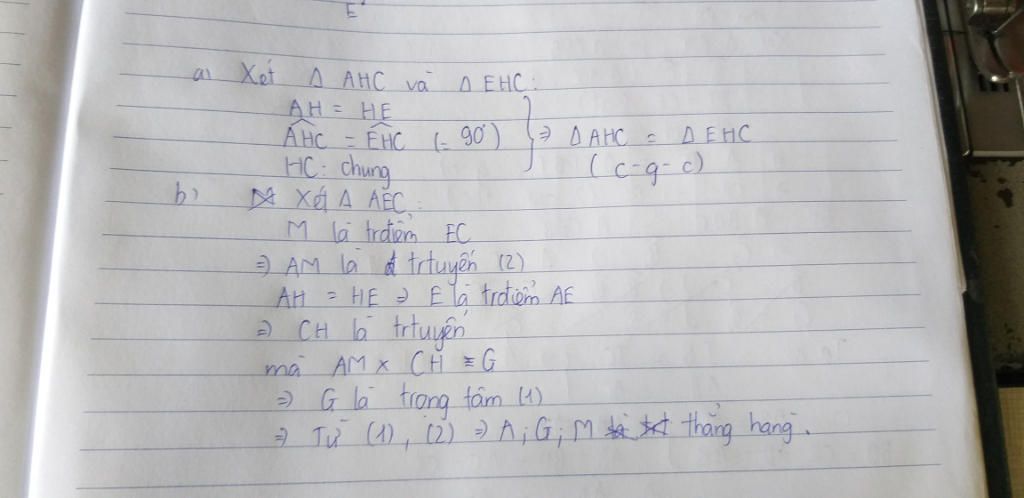 E
a) Xét Δ AHC và Δ EHC:
AH = HE
AHC = EHC (= 90°) ⇒ Δ AHC = Δ EHC
HC: chung (c-g-c)
b) Xét Δ AEC:
M là trđiểm EC
⇒ AM là trtuyến (2)
AH = HE ⇒ E là trđiểm AE
⇒ CH là trtuyến
mà AM x CH ≡ G
⇒ G là trọng tâm (1)
⇒ Từ (1), (2) ⇒ A; G; M thẳng hàng.